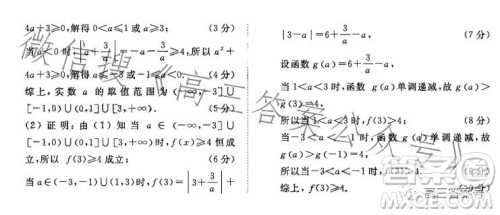 4a+3≥0,解得 0<a≤1 或 a≥3; (3 分)
当 a<0 时,a+3/a=-a-3/a≥4,所以 a²+
4a+3≥0,解得 a≤-3 或 -1≤a<0. (4 分)
综上,实数 a 的取值范围为 (-∞,-3]∪
[-1,0)∪(0,1]∪[3,+∞). (5 分)
(2) 证明:由 (1) 知当 a∈(-∞,-3]∪
[-1,0)∪(0,1]∪[3,+∞)时,f(x)≥4 恒成
立,所以 f(3)≥4 成立; (6 分)
当 a∈(-3,-1)∪(1,3)时,f(3)=|3+3/a|+
|3-a|=6+3/a-a, (7 分)
设函数 g(a)=6+3/a-a,
当 1<a<3 时,函数 g(a)单调递减,故 g(a)>
g(3)=4,
所以当 1<a<3 时,f(3)>4; (8 分)
当 -3<a<-1 时,函数 g(a)单调递减,故
g(a)>g(-1)=4,
所以当 -3<a<-1 时,f(3)>4.
综上,f(3)≥4.
微信搜《高三答案公众号》